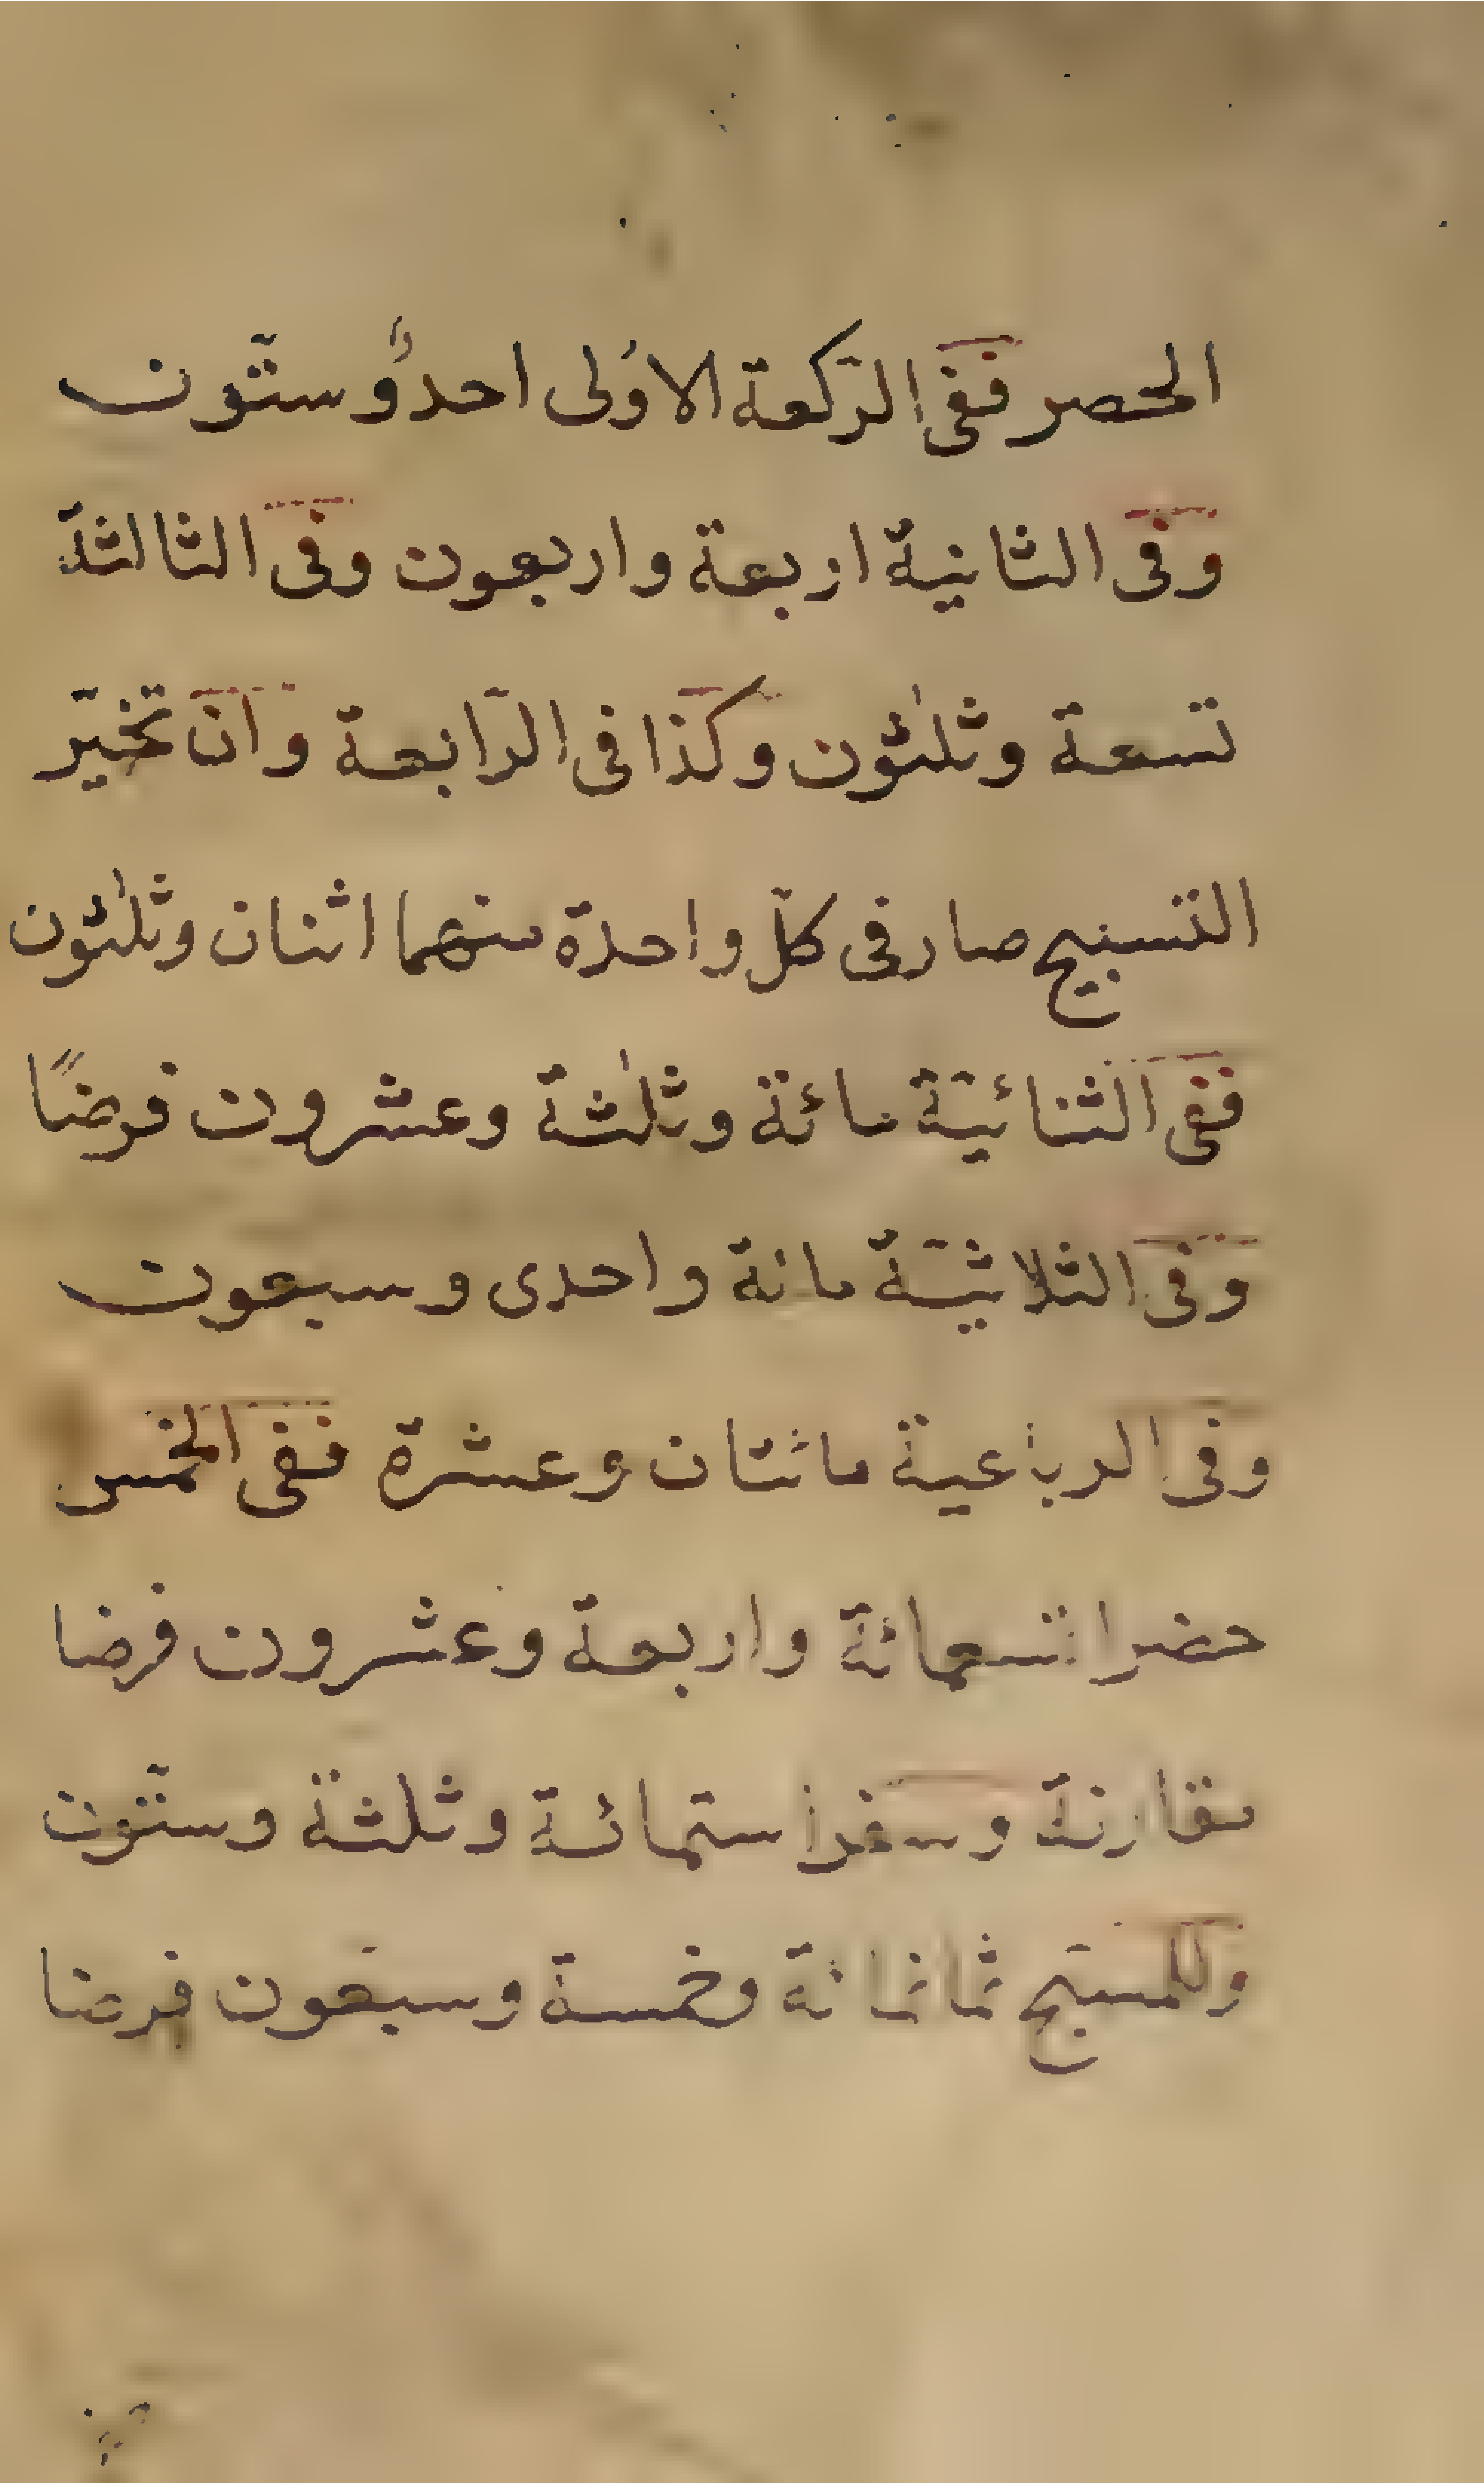 الحصر ففى الرّكعة الاوُلى احدٌ وستّون
وفى الثانية اربعة واربعون وفى الثالثة
تسعة وثلٰثون وكذا فى الرّابعة وان تخيّر
التسبيح صار فى كلّ واحدة منهما اثنان وثلٰثون
ففى الثنائيّة مائة وثلٰثة وعشرون فرضًا
وفى الثلاثيّة مائة واحدى وسبعون
وفى الرباعية مائتان وعشرة ففى الخمس
حضرا تسعمائة واربعة وعشرون فرضا
مقارنة وسفرا ستمائة وثلثة وستّون
وللمسبّح ثمانمائة وخمسة وسبعون فرضا